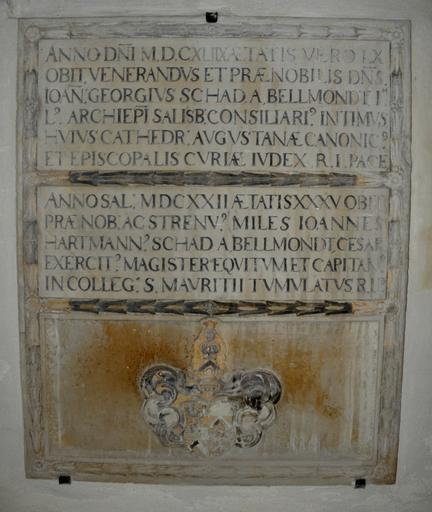 ANNO DÑI M.D.CXLIIX ÆTATIS VERO LX
OBIIT, VENERANDVS ET PRÆNOBILIS DN̄S
IOAÑ, GEORGIVS SCHAD A, BELLMONDT Iꝰ
Lꝰ. ARCHIEP̄I SALISB: CONSILIARIꝰ. INTIMVS
HVIVS CATHEDR: AVGVSTANÆ CANONICꝰ.
ET EPISCOPALIS CVRIÆ IVDEX. R. I. PACE
ANNO SAL: MDCXXII ÆTATIS XXXV OBIIT
PRÆNOB: AC STRENVꝰ. MILES IOANNES
HARTMANNꝰ. SCHAD A BELLMONDT, CESAR
EXERCITꝰ. MAGISTER EQVITVM ET CAPITANꝰ
IN COLLEG: S. MAVRITII TVMVLATVS R.I.P